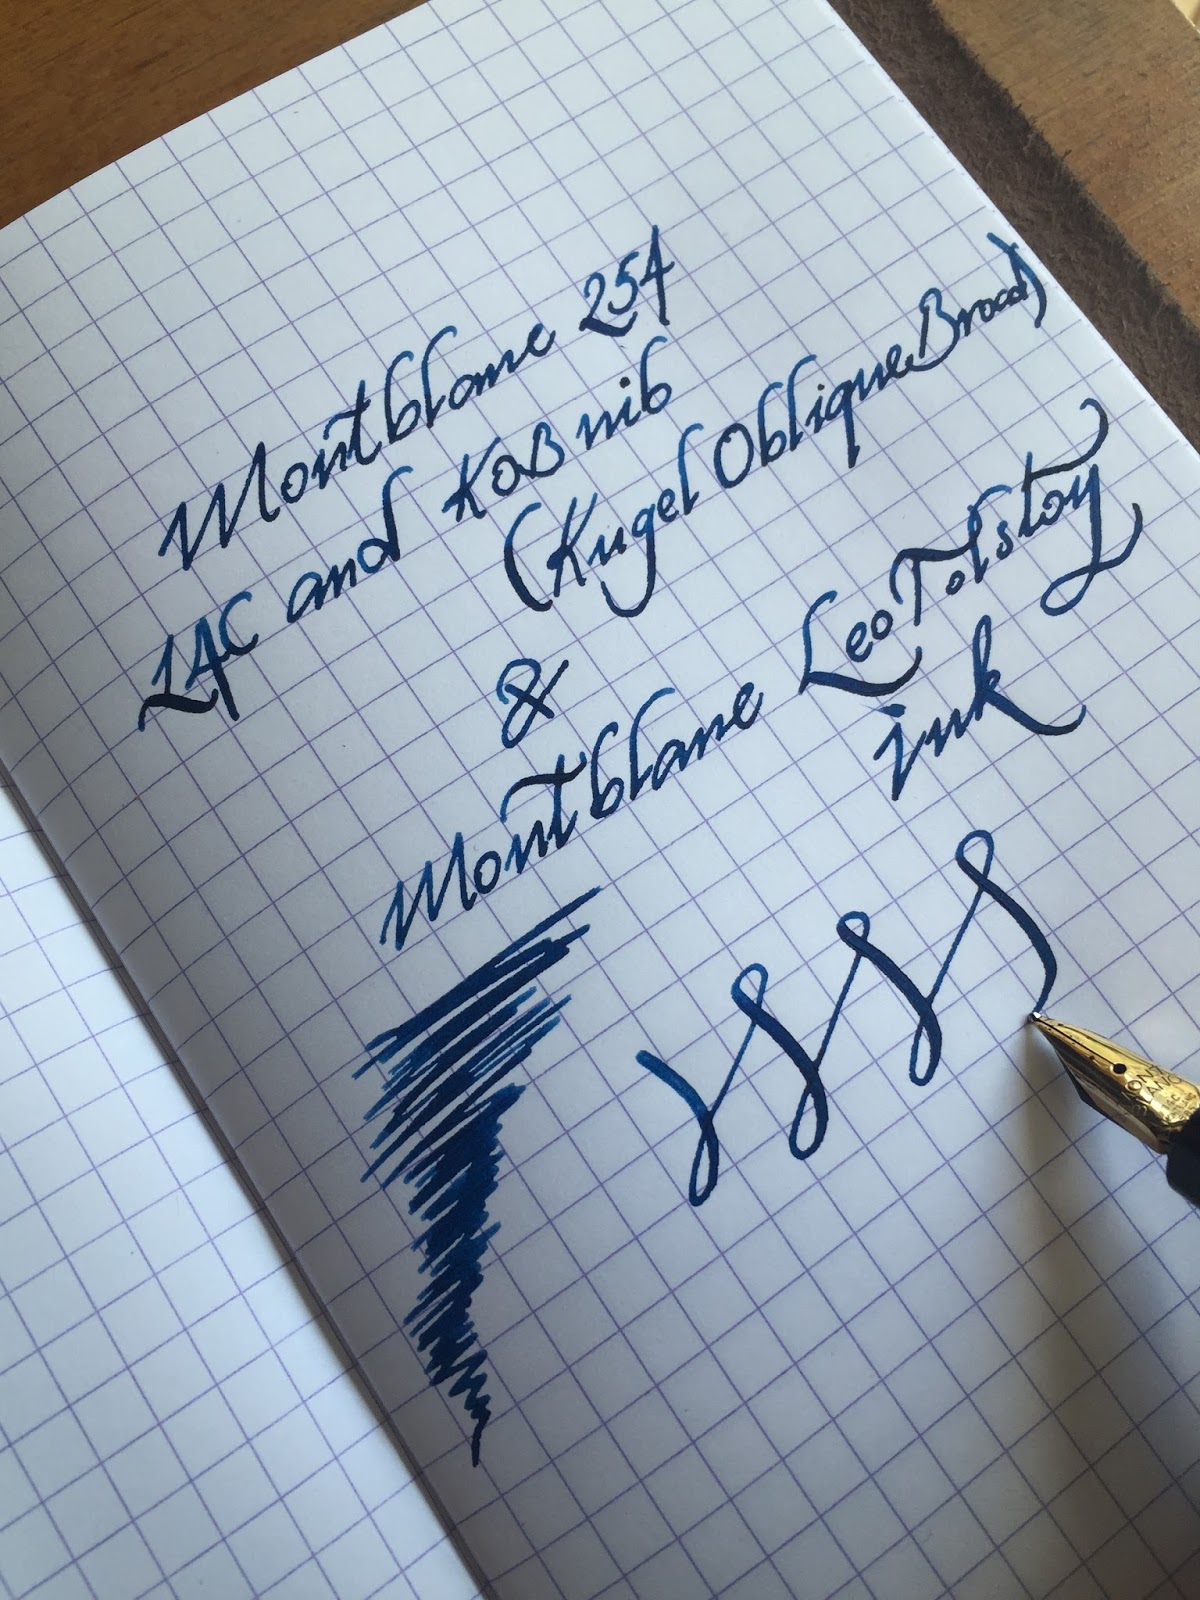 Montblanc 254
14C and KOB nib
(Kugel Oblique Broad)
&
Montblanc Leo Tolstoy
ink